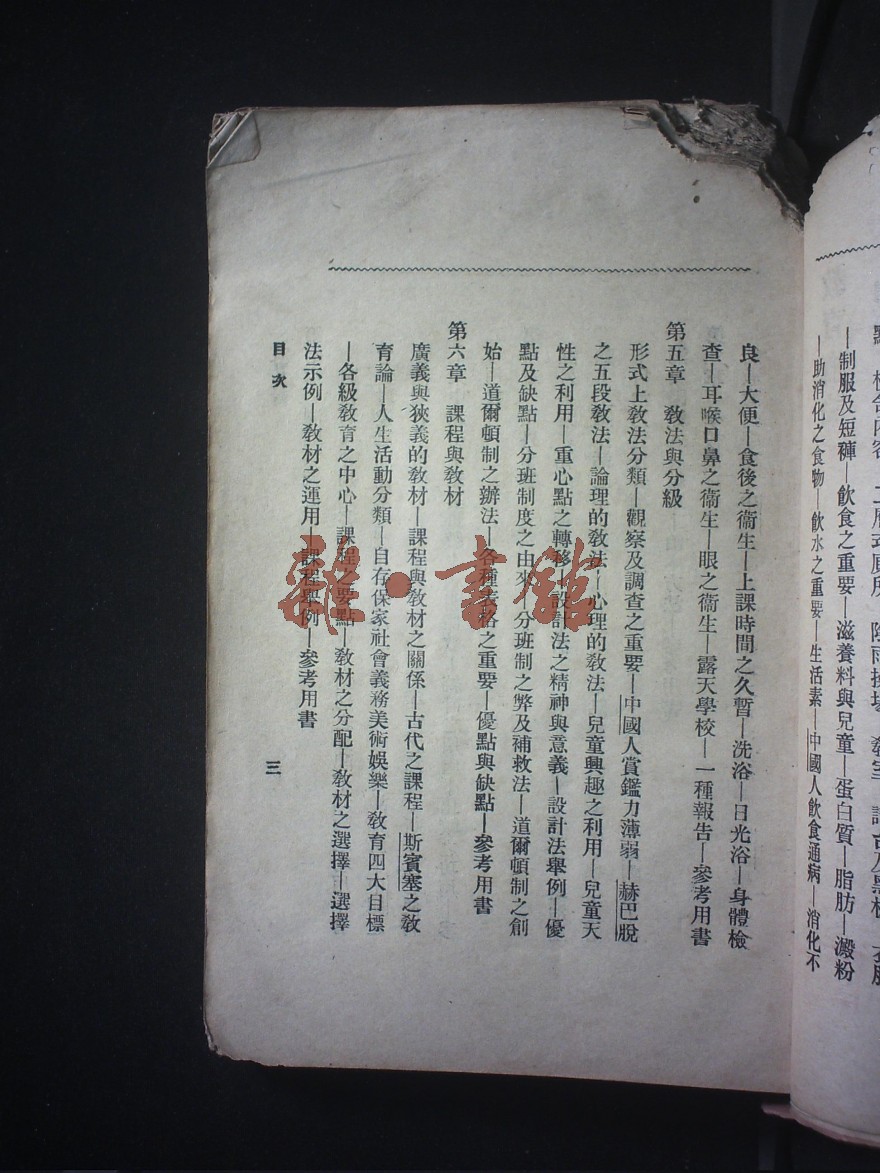 點
制服及短褲—飲食之重要—滋養料與兒童—蛋白質—脂肪—澱粉
—助消化之食物—飲水之重要—生活素—中國人飲食通病—消化不
良—大便—食後之衞生—上課時間之久暫—洗浴—日光浴—身體檢
查—耳喉口鼻之衞生—眼之衞生—露天學校—一種報告—參考用書
第五章 教法與分級
形式上教法分類—觀察及調查之重要—中國人賞鑑力薄弱—赫巴脫
之五段教法—論理的教法—心理的教法—兒童興趣之利用—兒童天
性之利用—重心點之轉移—設計法之精神與意義—設計法舉例—優
點及缺點—分班制度之由來—分班制之弊及補救法—道爾頓制之創
始—道爾頓制之辦法—各種表格之重要—優點與缺點—參考用書
第六章 課程與教材
廣義與狹義的教材—課程與教材之關係—古代之課程—斯賓塞之教
育論—人生活動分類—自存保家社會義務美術娛樂—教育四大目標
—各級教育之中心—課程之要點—教材之分配—教材之選擇—選擇
法示例—教材之運用—課程舉例—參考用書
目次
三
雜·書館